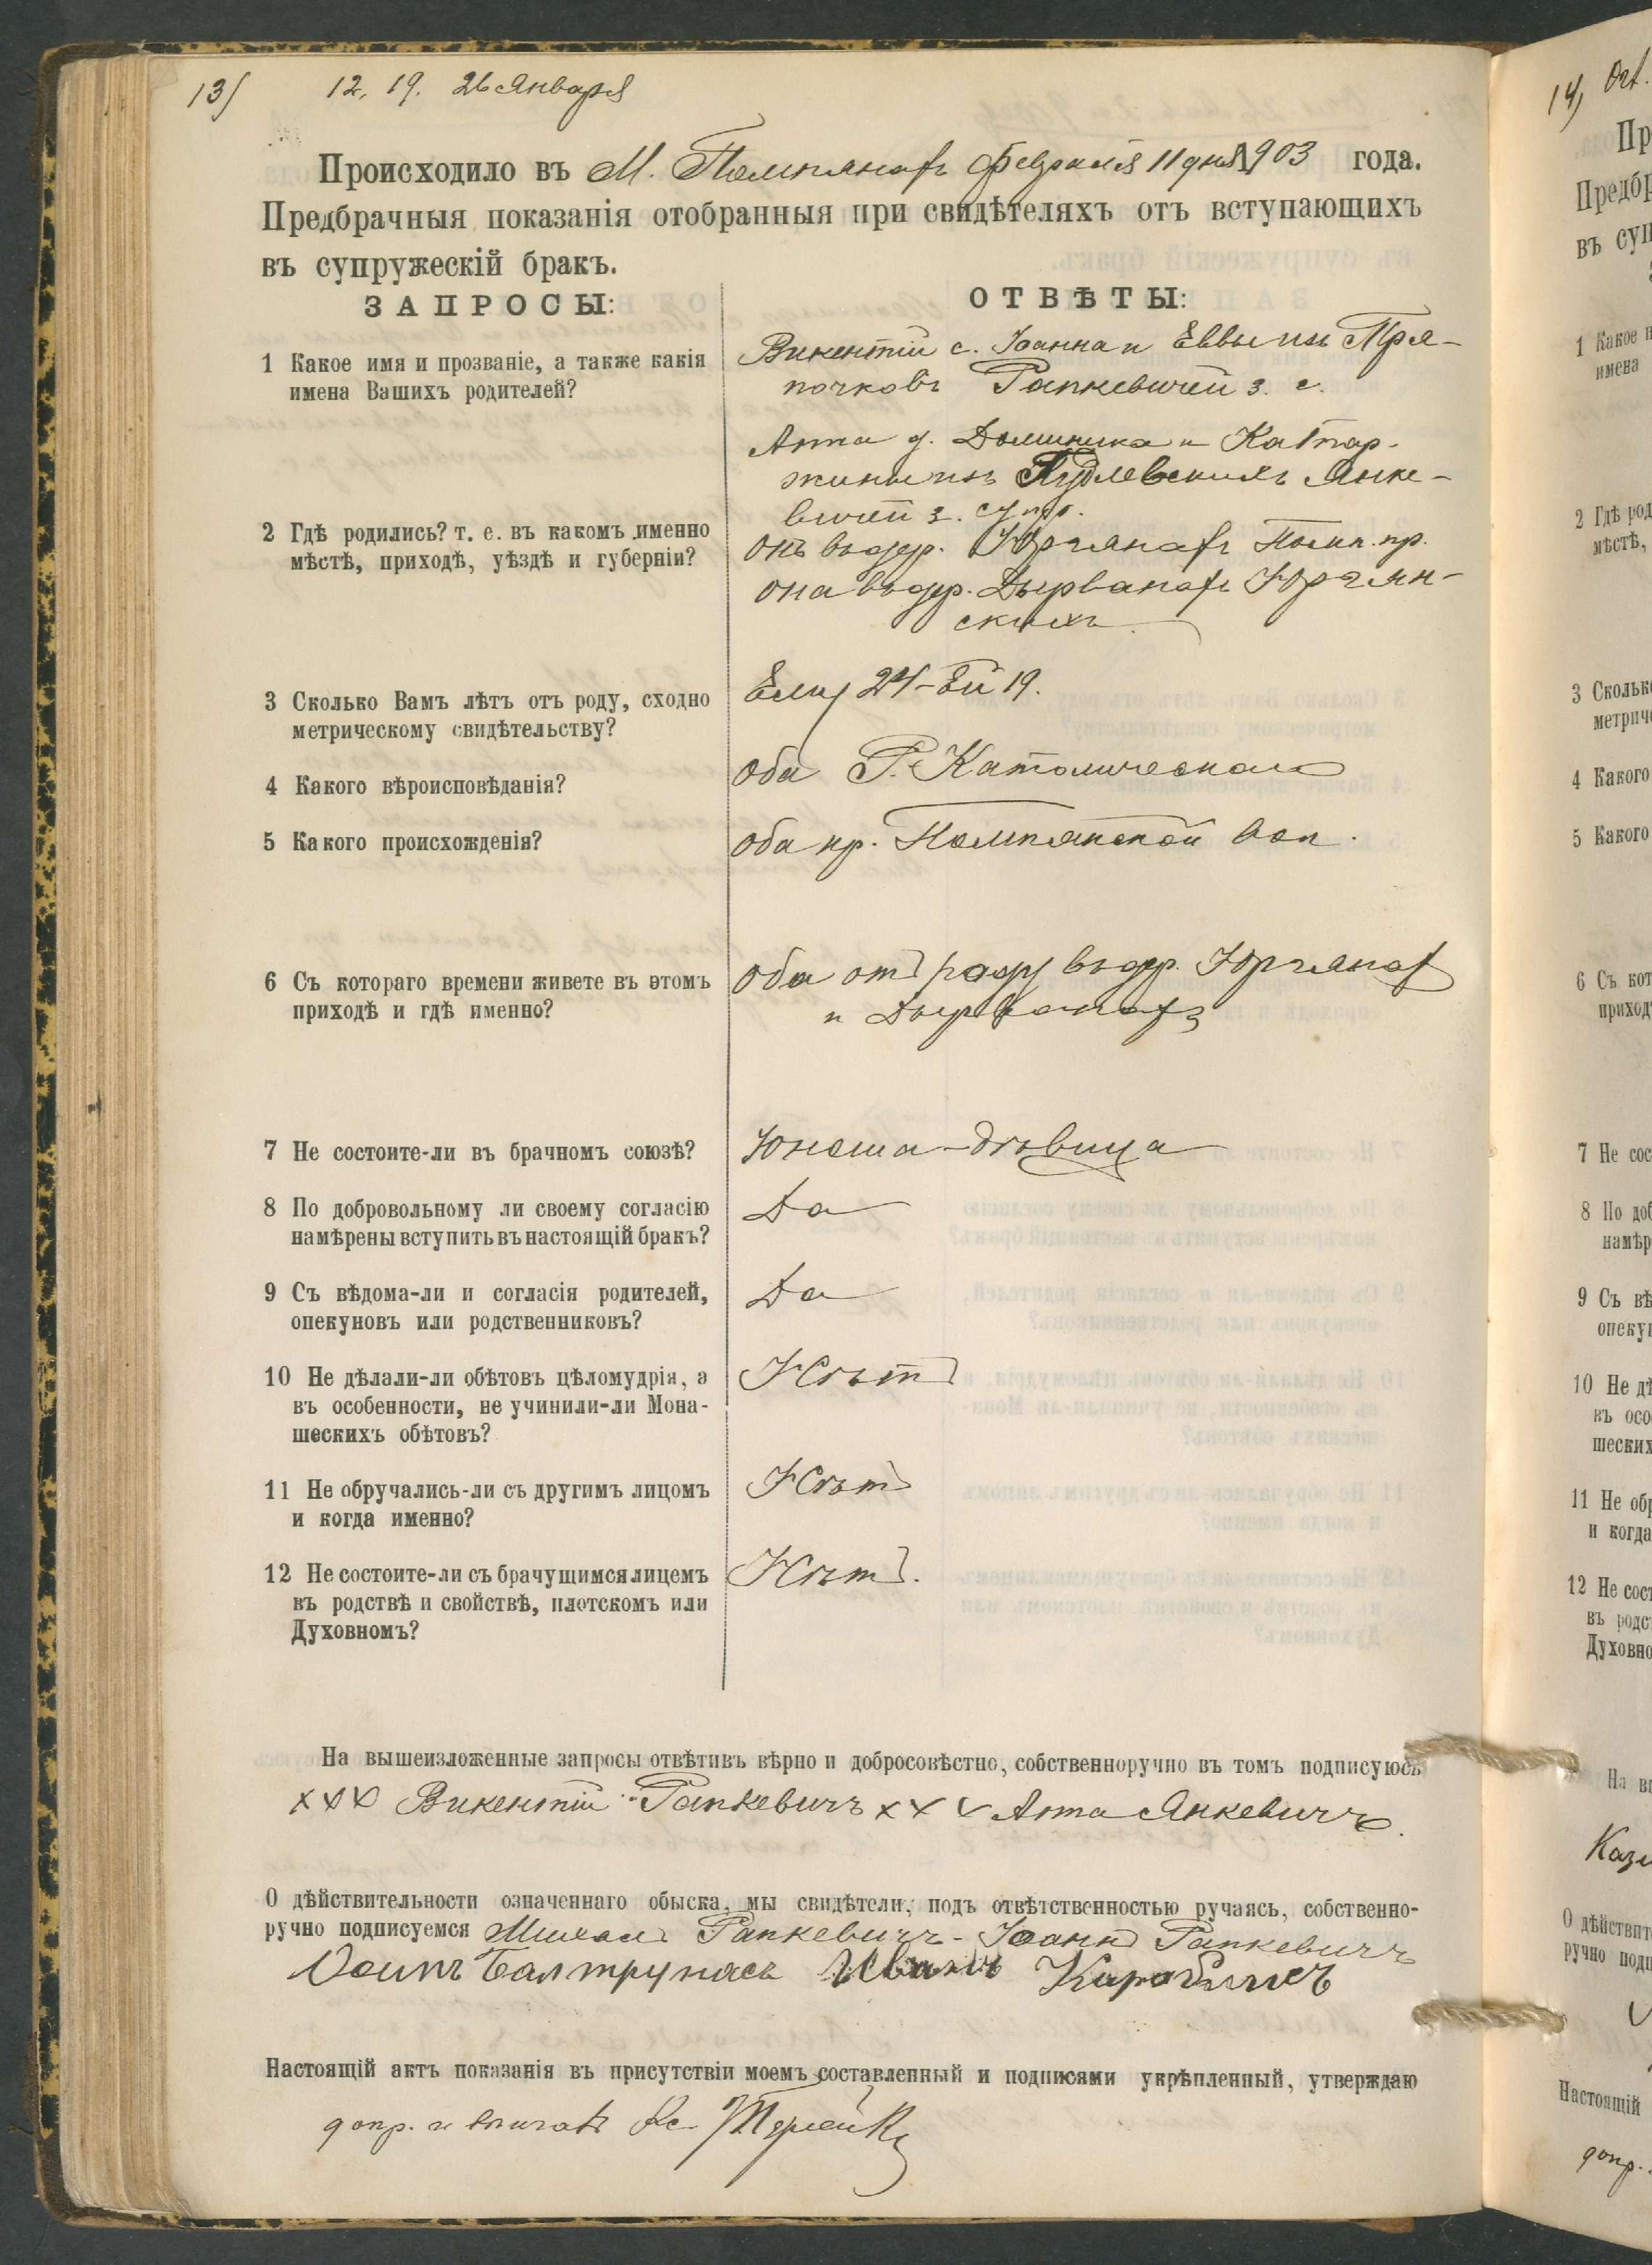 13) 12, 19. 26 Января
Происходило въ М. Помпянахъ Февраля 11 дня 1903 года.
Предбрачныя показанія отобранныя при свидѣтеляхъ отъ вступающихъ
въ супружескій бракъ.
ЗАПРОСЫ: ОТВѢТЫ:
1 Какое имя и прозваніе, а также какія
имена Вашихъ родителей?
Викентій с. Іоанна и Еввы изъ Пря-
почковъ Рапкевичей з. с.
Анна д. Доминика и Катар-
жины изъ Янке-
вичей з. супр.
2 Гдѣ родились? т. е. въ какомъ именно
мѣстѣ, приходѣ, уѣздѣ и губерніи?
онъ въ дер. Юргянахъ Помп. пр.
она въ дер. Дырванахъ Юргян-
скихъ
3 Сколько Вамъ лѣтъ отъ роду, сходно
метрическому свидѣтельству?
Ему 24 – Ей 19.
4 Какого вѣроисповѣданія?
оба Р. Католическаго
5 Какого происхожденія?
оба кр. Помпянской вол.
6 Съ котораго времени живете въ этомъ
приходѣ и гдѣ именно?
оба отъ роду въ дер. Юргянахъ
и Дырванахъ
7 Не состоите-ли въ брачномъ союзѣ?
Юноша – дѣвица
8 По добровольному ли своему согласію
намѣрены вступить въ настоящій бракъ?
Да
9 Съ вѣдома-ли и согласія родителей,
опекуновъ или родственниковъ?
Да
10 Не дѣлали-ли обѣтовъ цѣломудрія, а
въ особенности, не учинили-ли Мона-
шескихъ обѣтовъ?
Нѣтъ
11 Не обручались-ли съ другимъ лицомъ
и когда именно?
Нѣтъ
12 Не состоите-ли съ брачущимся лицемъ
въ родствѣ и свойствѣ, плотскомъ или
Духовномъ?
Нѣтъ.
На вышеизложенные запросы отвѣтивъ вѣрно и добросовѣстно, собственноручно въ томъ подписуюсь
ххх Викентій Рапкевичъ ххх Анна Янкевичъ.
О дѣйствительности означеннаго обыска, мы свидѣтели, подъ отвѣтственностью ручаясь, собственно-
ручно подписуемся Михаилъ Рапкевичъ - Іоаннъ Рапкевичъ
Осипъ Балтрунасъ Иванъ
Настоящій актъ показанія въ присутствіи моемъ составленный и подписями укрѣпленный, утверждаю
допр. и вѣнчалъ Кс.
14)
Пр
Предбр
въ суп
1 Какое и
имена
2 Гдѣ род
мѣстѣ,
3 Сколько
метриче
4 Какого
5 Какого
6 Съ кот
приход
7 Не сос
8 По доб
намѣр
9 Съ вѣ
опеку
10 Не дѣ
въ осо
шеских
11 Не обр
и когда
12 Не сос
въ родс
Духовно
На вы
Кази
О дѣйствит
ручно подп
Настоящій
допр.